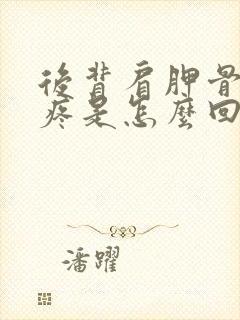 後背肩胛骨
疼是怎麼回
潘躍